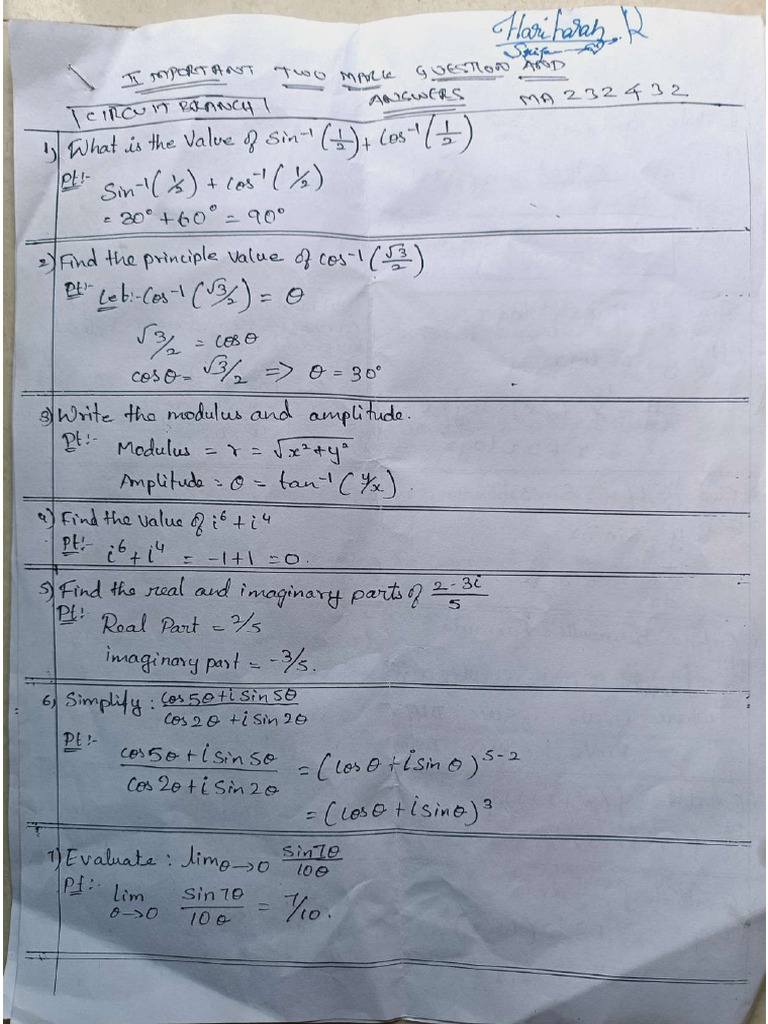 Hariharan. R
II IMPORTANT TWO MARK QUESTION AND
ANSWERS MA232432
CIRCUIT BRANCH
1) What is the Value of Sin⁻¹(1/2) + Cos⁻¹(1/2)
Pt:-
Sin⁻¹(1/2) + Cos⁻¹(1/2)
= 30° + 60° = 90°
2) Find the principle value of cos⁻¹(√3/2)
Pt:- Let:- Cos⁻¹(√3/2) = θ
√3/2 = cosθ
cosθ = √3/2 => θ = 30°
3) Write the modulus and amplitude.
Pt:- Modulus = r = √x²+y²
Amplitude = θ = tan⁻¹(y/x).
4) Find the value of i⁶ + i⁴
Pt:- i⁶ + i⁴ = -1+1 = 0.
5) Find the real and imaginary parts of 2-3i/5
Pt:- Real Part = 2/5
imaginary part = -3/5.
6) Simplify : cos5θ + i Sin 5θ / cos2θ + i sin 2θ
Pt:-
cos5θ + i sin 5θ / Cos 2θ + i Sin 2θ = (Cosθ + i sin θ)⁵⁻²
= (Cosθ + i sinθ)³
7) Evaluate : lim θ→0 sin7θ/10θ
Pt:- lim θ→0 Sin 7θ/10θ = 7/10.